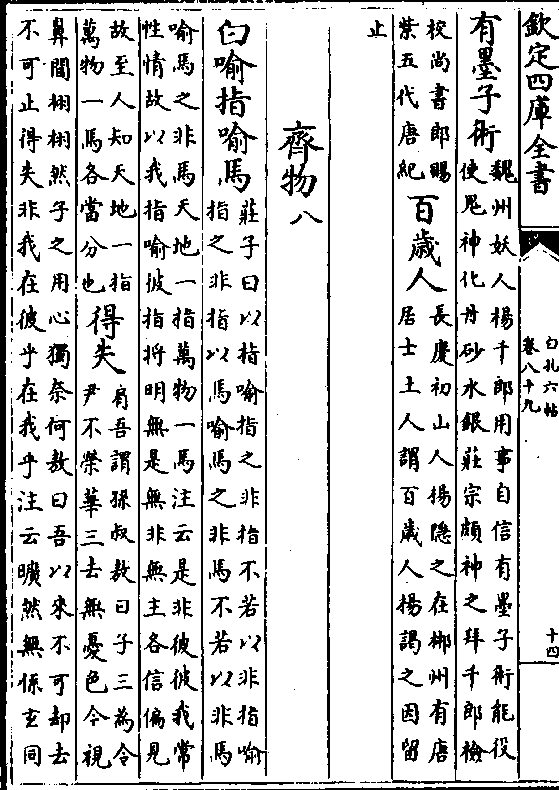 欽定四庫全書
白孔六帖
卷八十九
十四
有墨子術
魏州妖人楊千郎用事自信有墨子術能役
使鬼神化丹砂水銀莊宗頗神之拜千郎檢
校尚書郎賜
紫五代唐紀
百歲人
長慶初山人楊隱之在郴州有唐
居士土人謂百歲人楊謁之因留
止
齊物八
白喻指喻馬
莊子曰以指喻指之非指不若以非指喻
指之非指以馬喻馬之非馬不若以非馬
喻馬之非馬天地一指萬物一馬注云是非彼彼我常
性情故以我指喻彼指將明無是無非無主各信偏見
故至人知天地一指
萬物一馬各當分也
得失
肩吾謂孫叔敖曰子三為令
尹不榮華三去無憂色今視
鼻間栩栩然子之用心獨奈何敖曰吾以來不可却去
不可止得失非我在彼乎在我乎注云曠然無係玄同